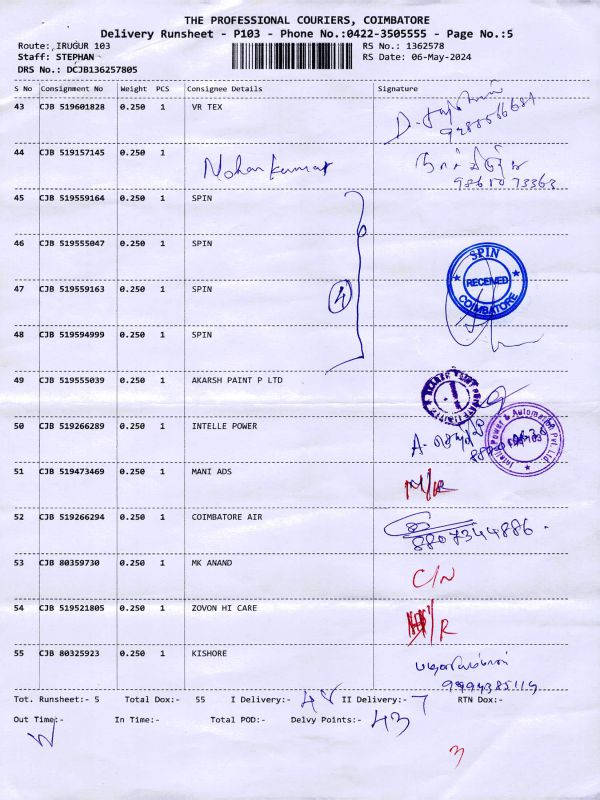 THE PROFESSIONAL COURIERS, COIMBATORE
Delivery Runsheet - P103 - Phone No.:0422-3505555 - Page No.:5
Route: IRUGUR 103 RS No.: 1362578
Staff: STEPHAN RS Date: 06-May-2024
DRS No.: DCJB136257805
S No Consignment No Weight PCS Consignee Details Signature
43 CJB 519601828 0.250 1 VR TEX
44 CJB 519157145 0.250 1 Mohan kumar
45 CJB 519559164 0.250 1 SPIN
46 CJB 519555047 0.250 1 SPIN
SPIN
RECEIVED
COIMBATORE
47 CJB 519559163 0.250 1 SPIN
4
48 CJB 519594999 0.250 1 SPIN
49 CJB 519555039 0.250 1 AKARSH PAINT P LTD
50 CJB 519266289 0.250 1 INTELLE POWER
Intelle Power & Automation Pvt. Ltd.
51 CJB 519473469 0.250 1 MANI ADS
52 CJB 519266294 0.250 1 COIMBATORE AIR
8807344886
53 CJB 80359730 0.250 1 MK ANAND C/N
54 CJB 519521805 0.250 1 ZOVON HI CARE
55 CJB 80325923 0.250 1 KISHORE
9994385119
Tot. Runsheet:- 5 Total Dox:- 55 I Delivery:- 48 II Delivery:- 7 RTN Dox:-
Out Time:- In Time:- Total POD:- Delvy Points:- 43
3